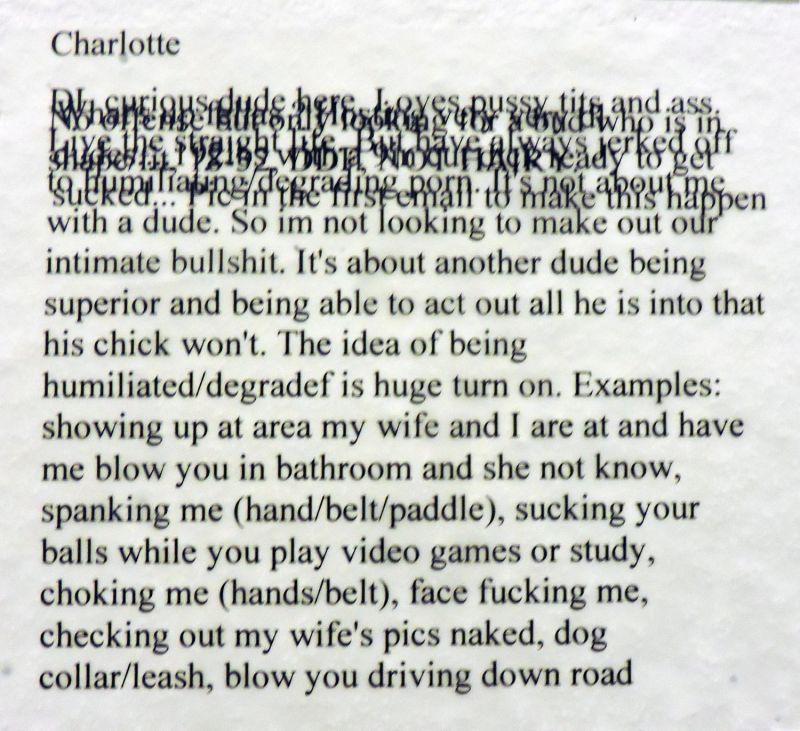 Charlotte
DL curious dude here. Loves pussy tits and ass.
No offense but only looking for a bud who is in
Live the straight life. But have always jerked off
to humiliating/degrading porn. It's not about me
sucked... Pic in the first email to make this happen
with a dude. So im not looking to make out our
intimate bullshit. It's about another dude being
superior and being able to act out all he is into that
his chick won't. The idea of being
humiliated/degradef is huge turn on. Examples:
showing up at area my wife and I are at and have
me blow you in bathroom and she not know,
spanking me (hand/belt/paddle), sucking your
balls while you play video games or study,
choking me (hands/belt), face fucking me,
checking out my wife's pics naked, dog
collar/leash, blow you driving down road